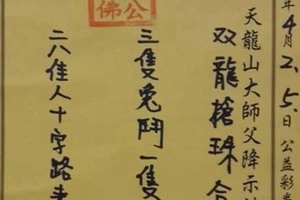 年4月2.5.日公益彩
天龍山大師父降示
双龍搶珠合
三隻兔鬥一隻
二八佳人十字路
公佛